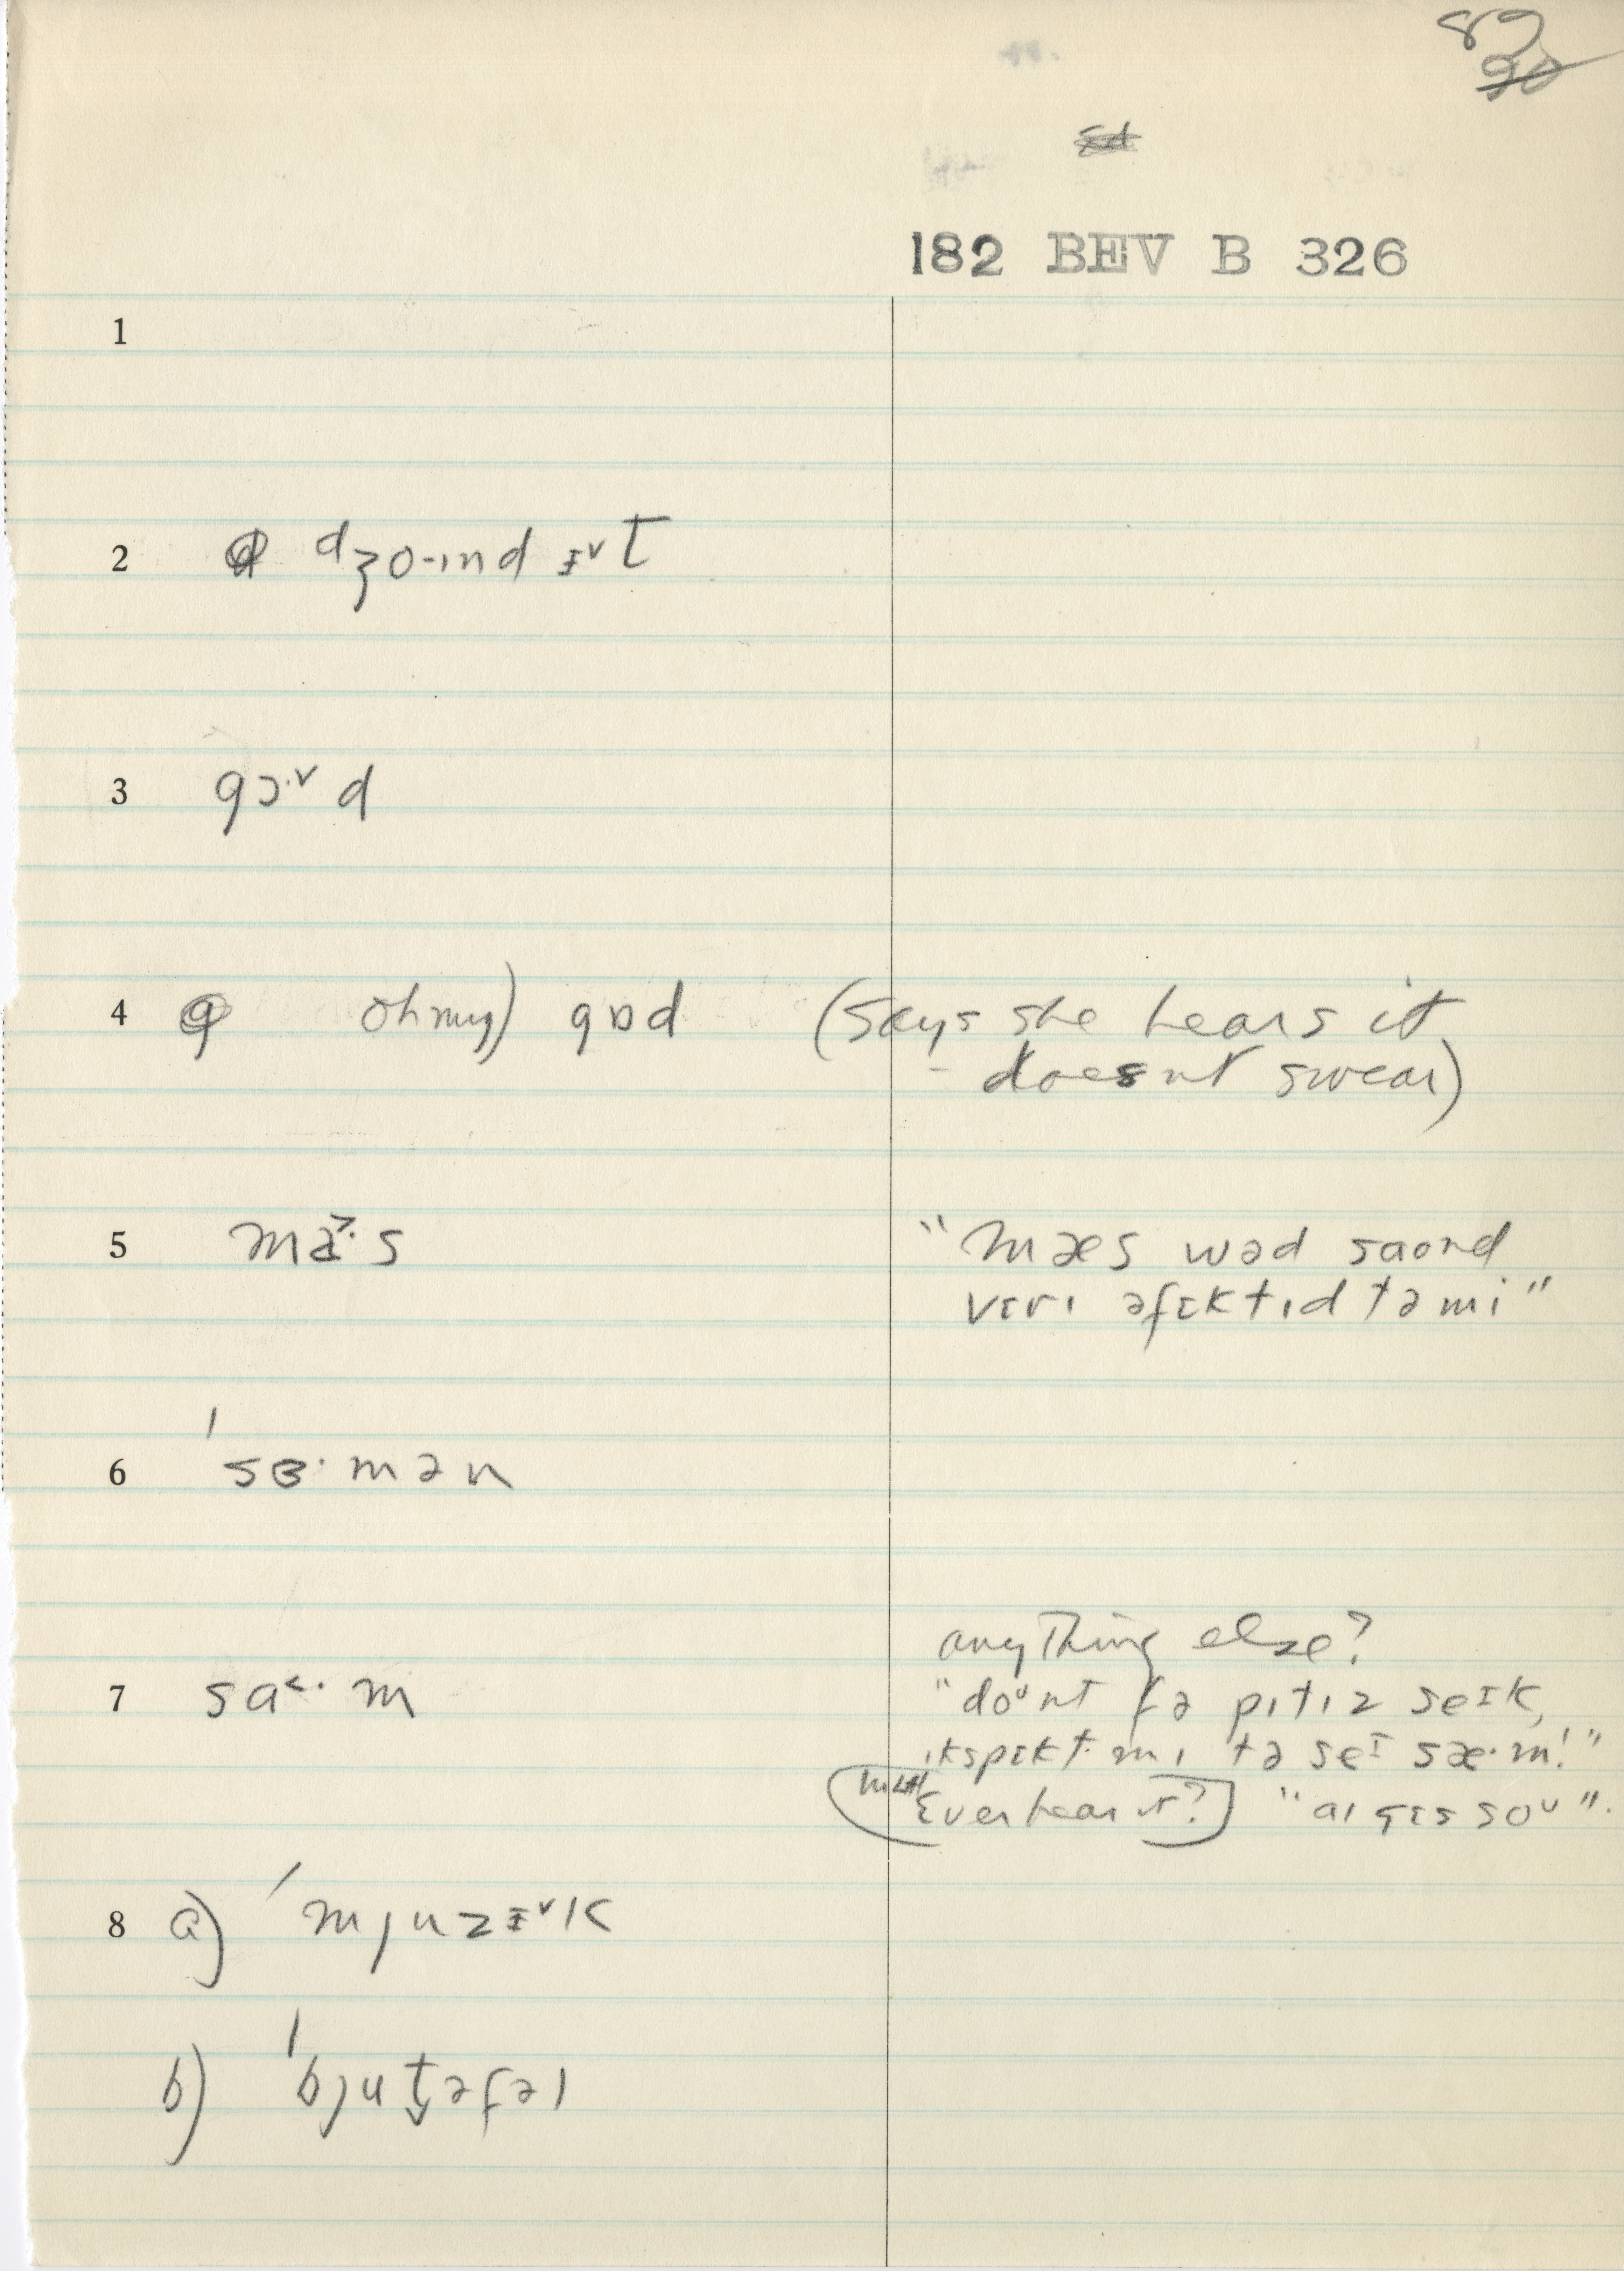 89
90
182 BEV B 326
1
2 dʒo-ɪnd ɪ˅t
3 gɔ·˅d
4 oh my) gɒd (says she hears it
- doesnt swear)
5 ma˃·s "mæs wəd saond
vɛrɪ əfɛktɪd tə mi"
6 ˈsɜ·mən
anything else?
7 sa˂·m "doʊnt fə pɪtɪz seɪk,
ɪkspɛkt mɪ tə seɪ sæ·m!"
Ever hear it? "aɪ gɛs soʊ".
8 a) ˈmjuzɪ˅k
b) ˈbjut̬əfəl